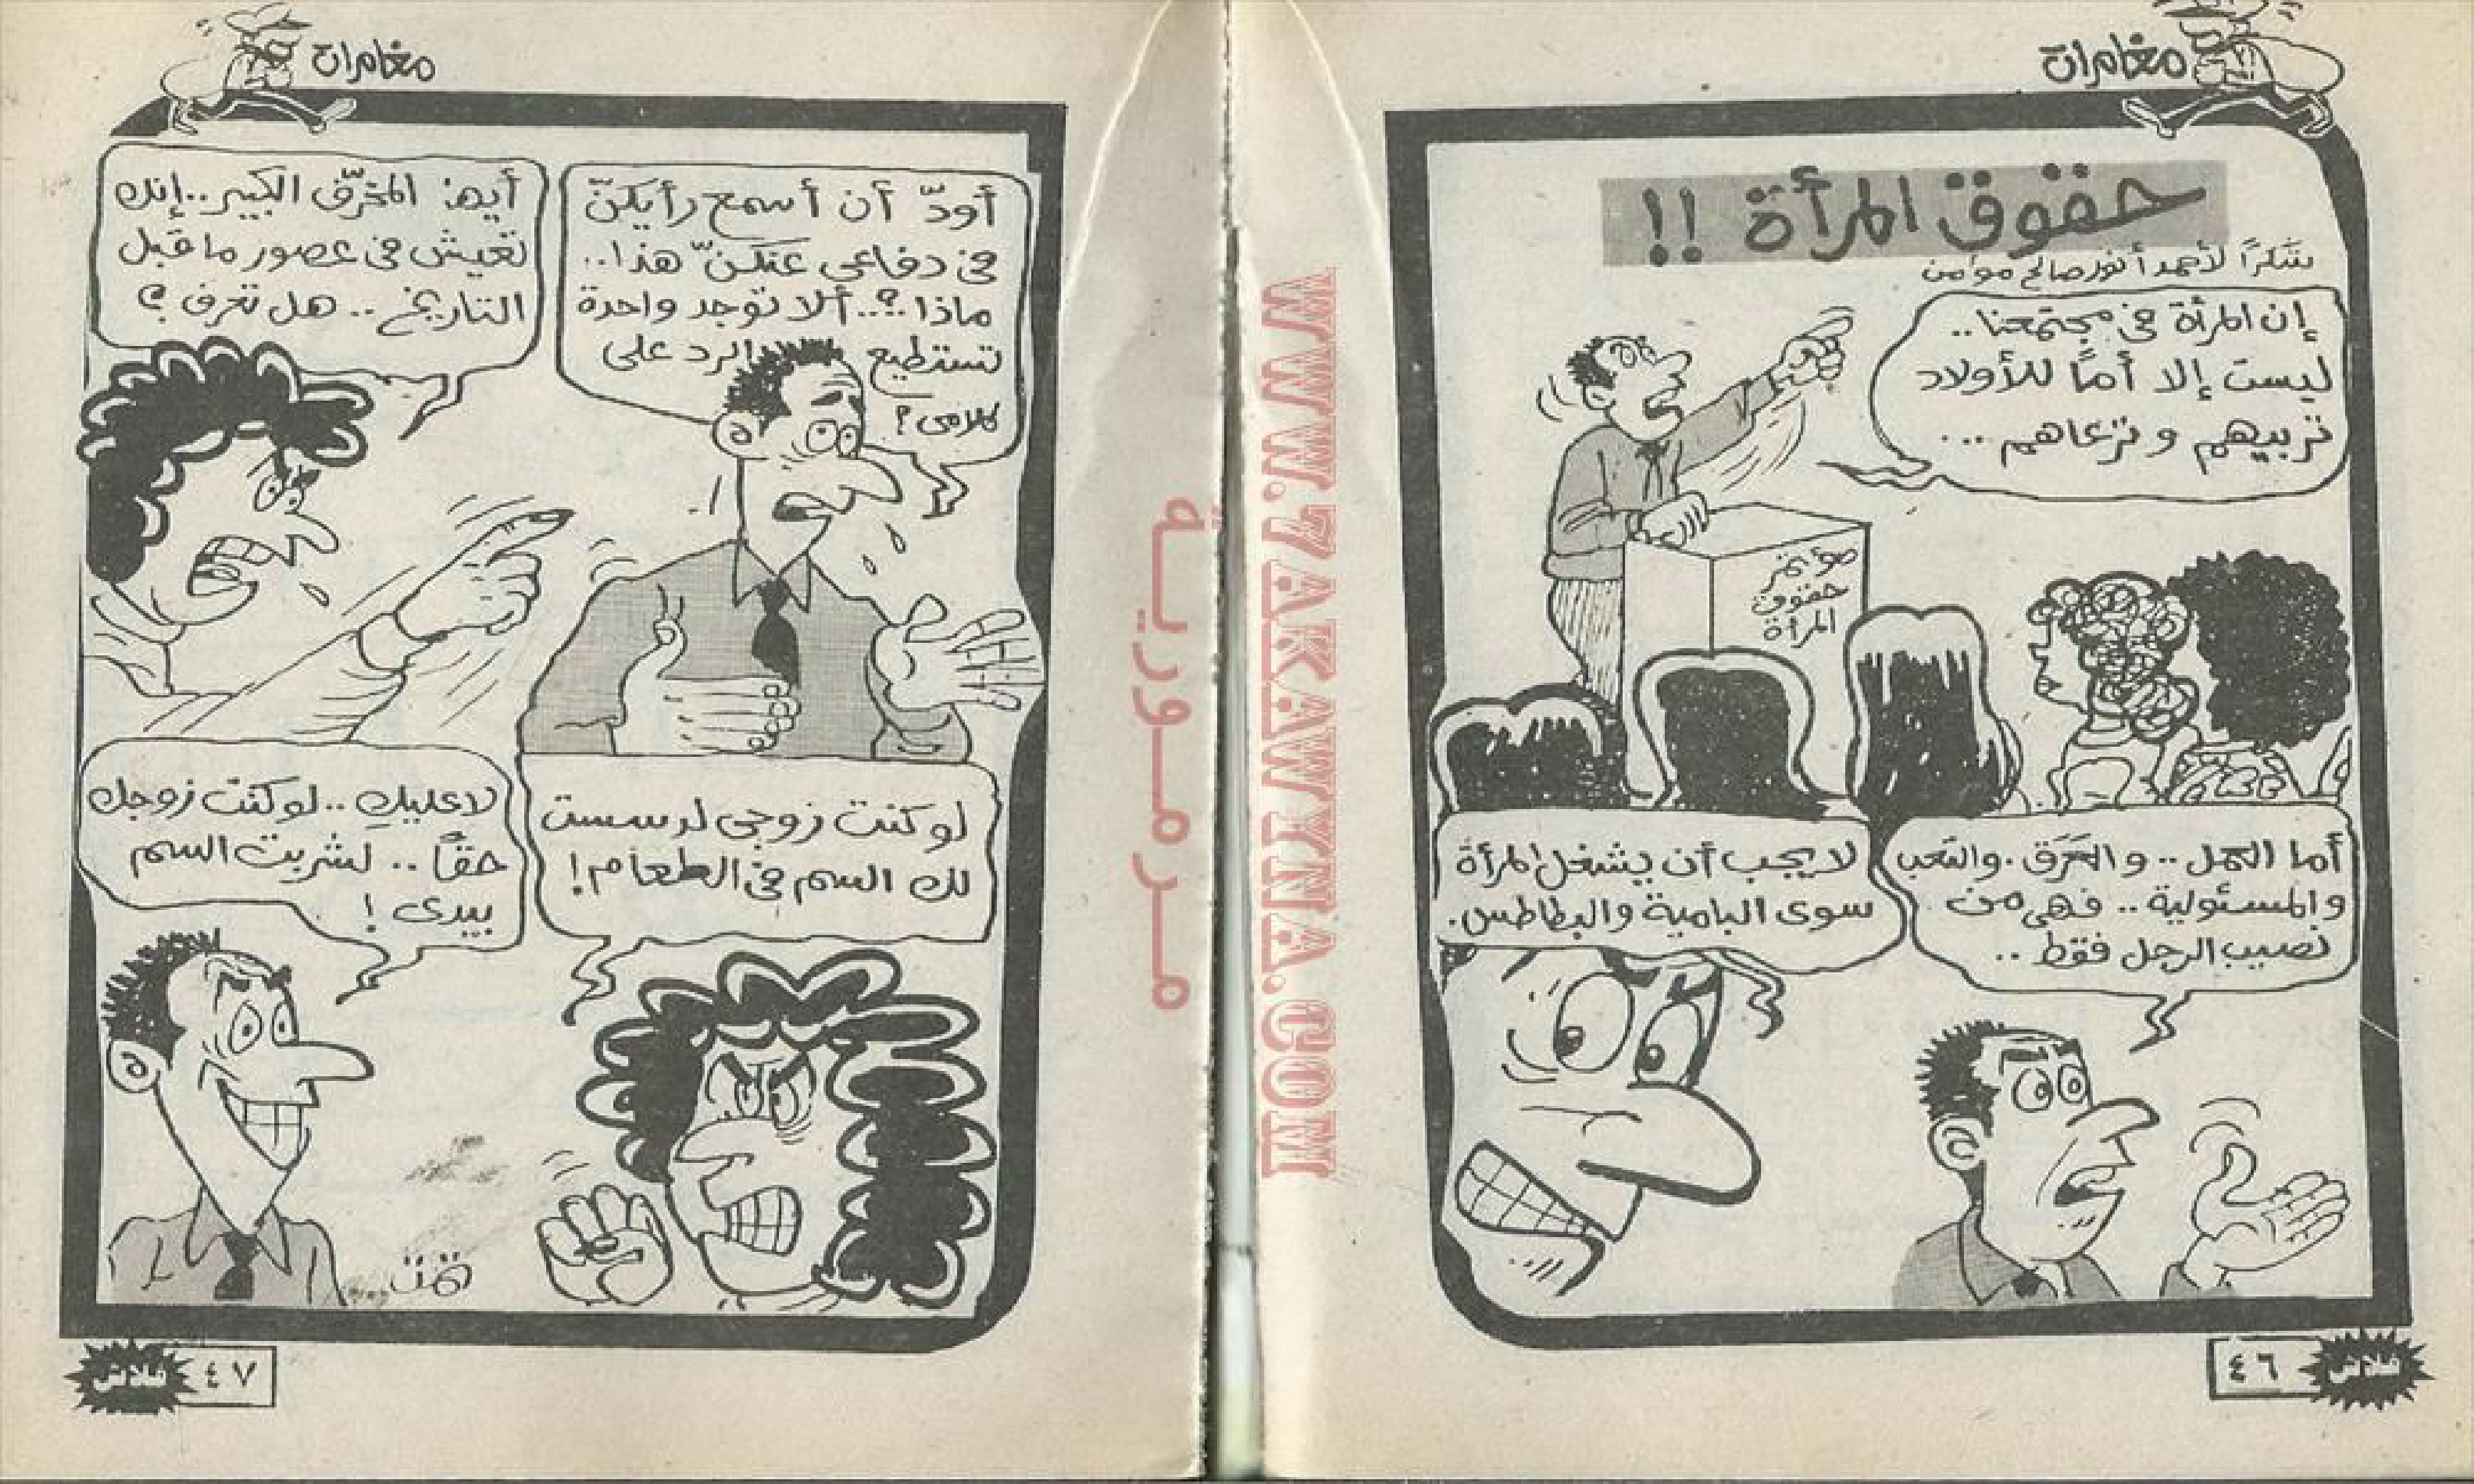 مغامرات
حقوق المرأة !!
شكراً لأحمد أنور صالح مؤمن
إن المرأة فى مجتمعنا..
ليست إلا أماً للأولاد
تربيهم وترعاهم ...
مؤتمر
حقوق
المرأة
أما العمل .. والعَرَق . والتعب
والمسئولية .. فهى من
نصيب الرجل فقط ..
لا يجب أن يشغل المرأة
سوى البامية والبطاطس.
٤٦
فلاش
WWW.7AKAWINA.COM
مرمورية
مغامرات
أودّ أن أسمع رأيكنّ
فى دفاعى عنكنّ هذا..
ماذا ؟.. ألا توجد واحدة
تستطيع الرد على
كلامى ؟
أيها المخرّف الكبير .. إنك
تعيش فى عصور ما قبل
التاريخ .. هل تعرف ؟
لو كنت زوجى لدسست
لك السم فى الطعام !
لا عليكِ .. لو كنت زوجك
حقاً .. لشربت السم
بيدى !
تمت
٤٧
فلاش